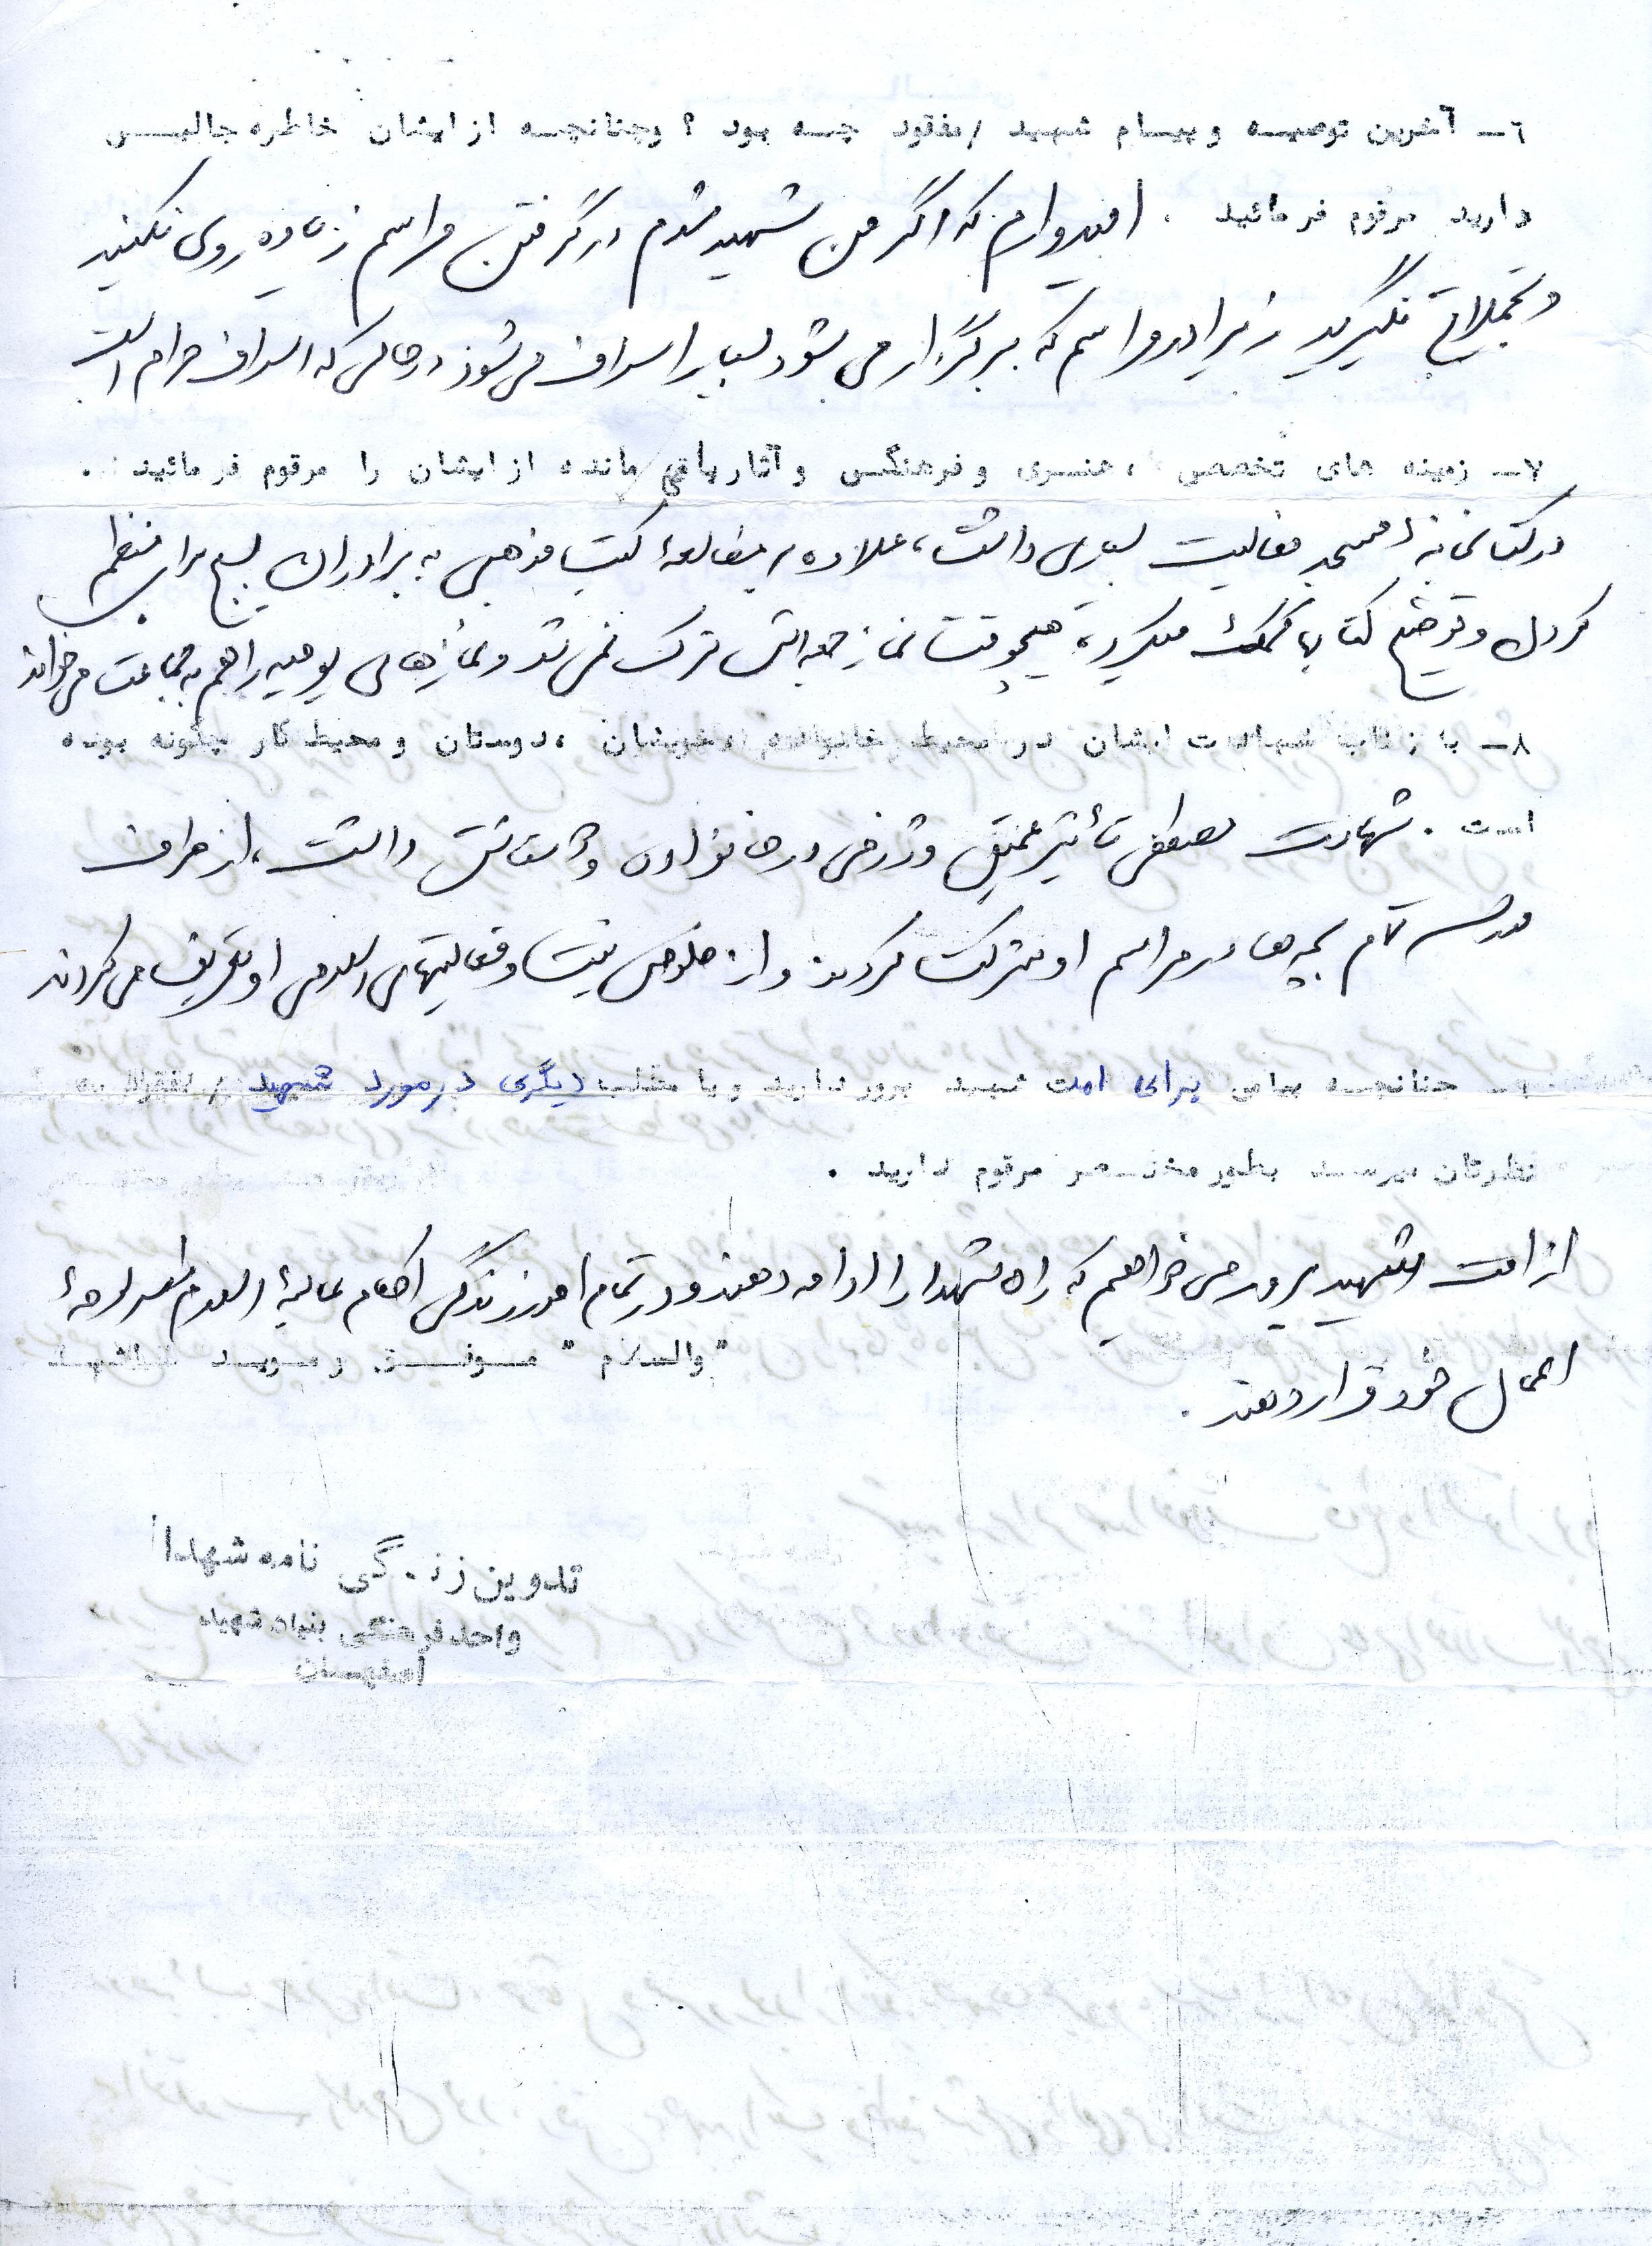 ٦- آخرین توصیه و پیام شهید /مفقود چه بود ؟ وچنانچه از ایشان خاطره جالبی
دارید مرقوم فرمائید . امیدوارم که اگر من شهید شدم در گرفتن مراسم زیاده روی نکنید
و تجملاتی نگیرید زیرا در مراسم که برگزار می شود بسیار اسراف می شود در حالی که اسراف حرام است
٧- زمینه های تخصصی ، هنری و فرهنگی و آثار باقی مانده از ایشان را مرقوم فرمائید .
در کتابخانه مسجد فعالیت بسیاری داشت، علاوه بر مطالعهٔ کتب مذهبی به برادران بسیج برای منظم
کردن و توضیح کتابها کمک میکرد، هیچوقت نماز جمعه اش ترک نمی شد و نمازهای یومیه را هم به جماعت می خواند
٨- بازتاب شهادت ایشان در محیط خانواده ، خویشان ، دوستان و محیط کار چگونه بوده
است . شهادت مصطفی تأثیر عمیق و ژرفی در خانواده و دوستانش داشت ، از طرف
مدرسه تمام بچه ها در مراسم او شرکت کردند و از خلوص نیت و فعالیتهای اسلامی او تعریف می کردند
٩- چنانچه پیامی برای امت شهید پرور دارید و یا مطلب دیگری در مورد شهید / مفقود به
نظرتان میرسد بطور مختصر مرقوم دارید .
از امت شهید پرور می خواهیم که راه شهدا را ادامه دهند و در تمام امور زندگی احکام عالیهٔ اسلام را سرلوحهٔ
"والسلام" موفق و موید باشید
اعمال خود قرار دهند .
تدوین زندگی نامه شهدا
واحد فرهنگی بنیاد شهید
اصفهان